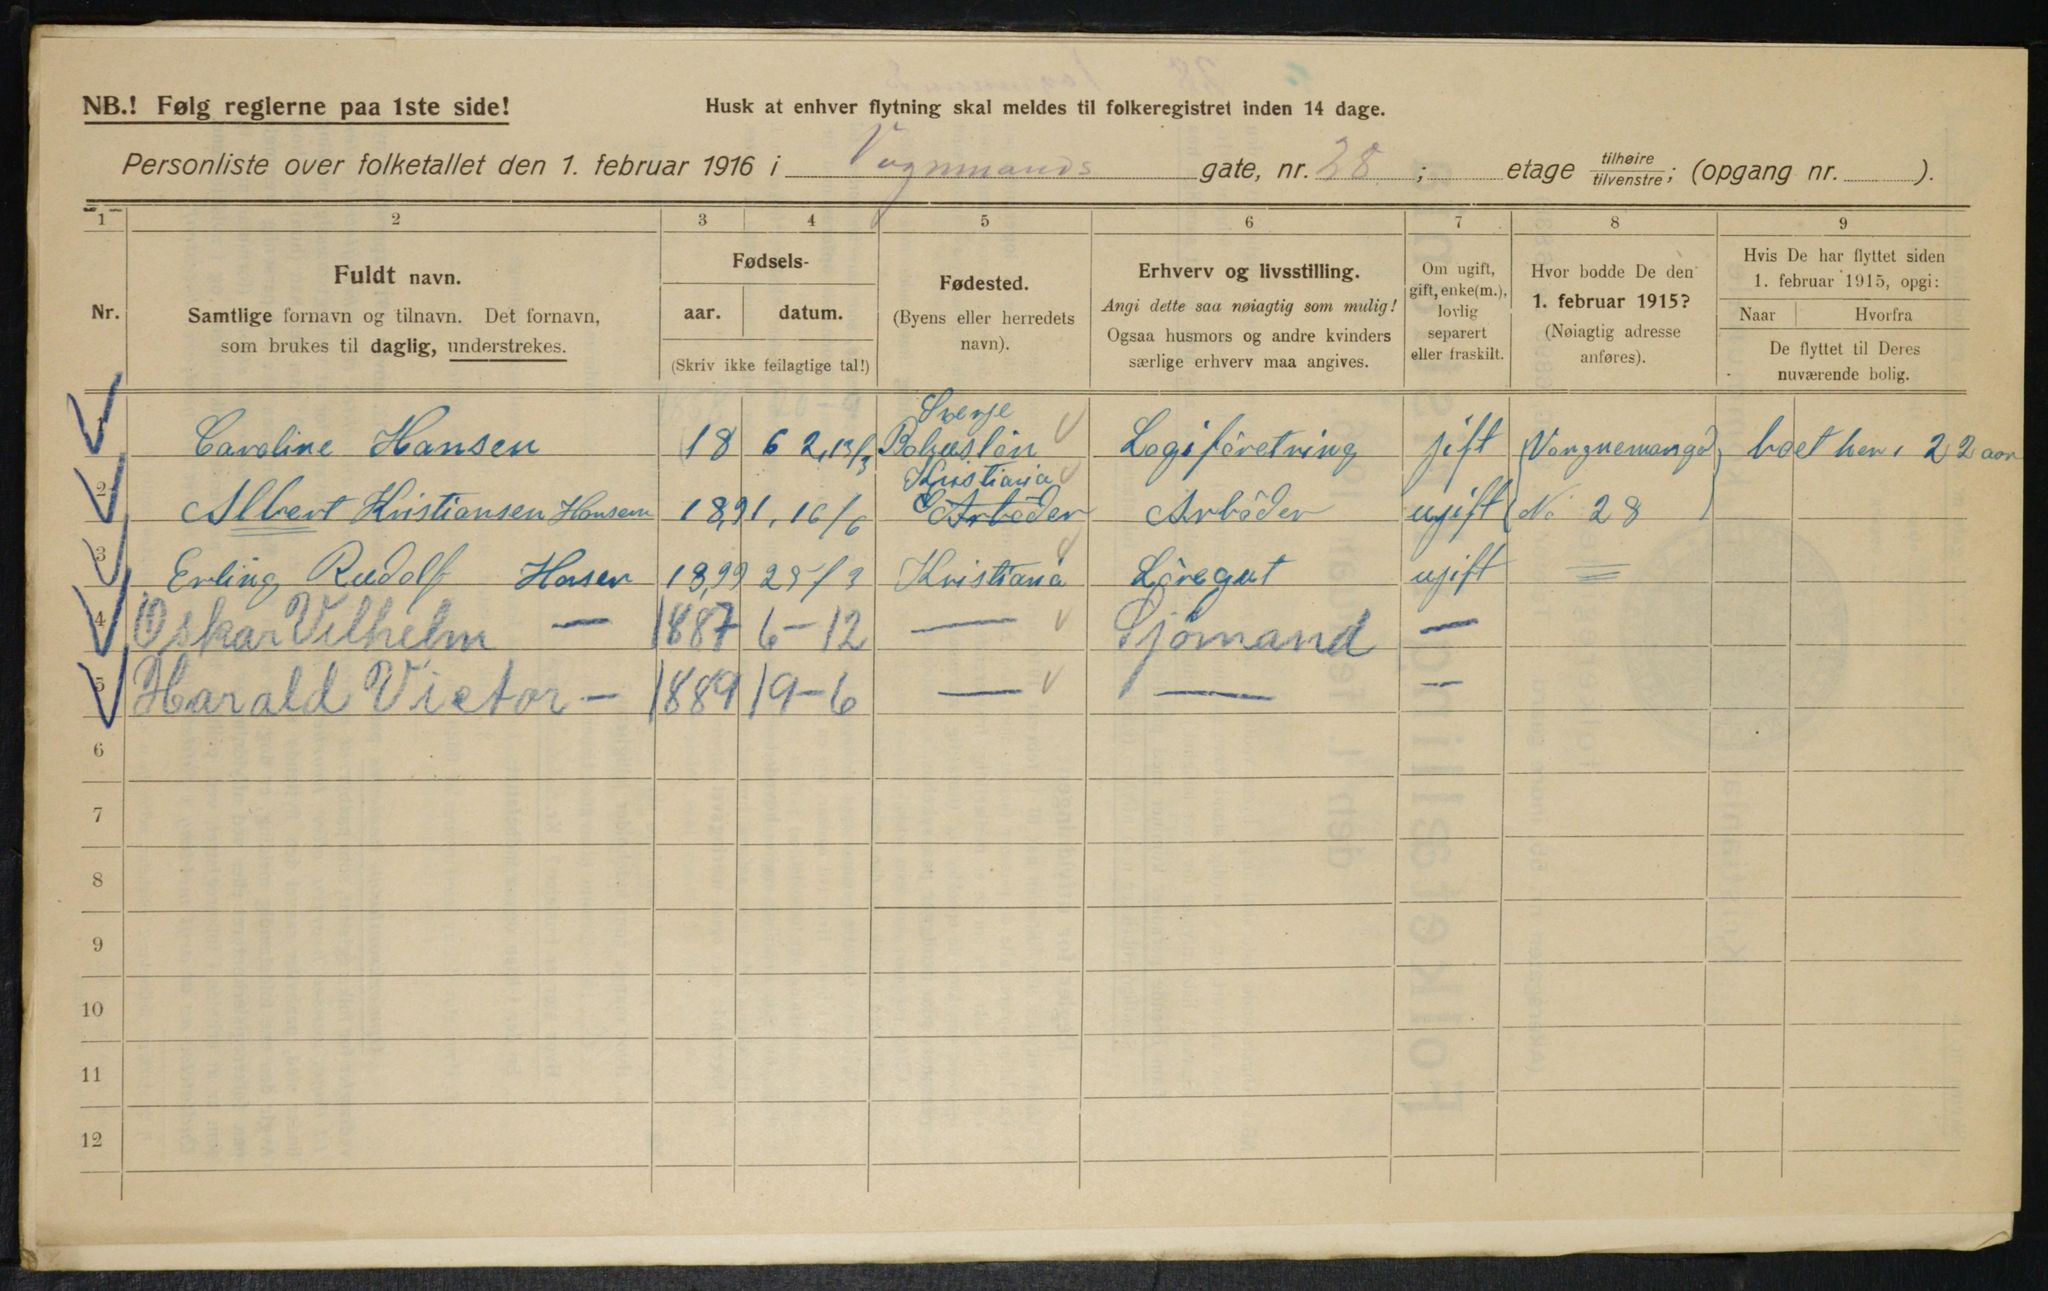 NB.! Følg reglerne paa 1ste side!
Husk at enhver flytning skal meldes til folkeregistret inden 14 dage.
Personliste over folketallet den 1. februar 1916 i Vognmands gate, nr. 28 ; etage tilhøire/tilvenstre; (opgang nr. ).
1 2 3 4 5 6 7 8 9
Nr.
Fuldt navn.
Samtlige fornavn og tilnavn. Det fornavn,
som brukes til daglig, understrekes.
Fødsels-
aar. datum.
(Skriv ikke feilagtige tal!)
Fødested.
(Byens eller herredets
navn).
Erhverv og livsstilling.
Angi dette saa nøiagtig som mulig!
Ogsaa husmors og andre kvinders
særlige erhverv maa angives.
Om ugift,
gift, enke(m.),
lovlig
separert
eller fraskilt.
Hvor bodde De den
1. februar 1915?
(Nøiagtig adresse
anføres).
Hvis De har flyttet siden
1. februar 1915, opgi:
Naar Hvorfra
De flyttet til Deres
nuværende bolig.
Sverje
Caroline Hansen 18 62, 13/3 Bohuslän Logiforetning jift boet her i 22 aar
Kristiania
2 Albert Kristiansen Hansen 18,91, 16/6 Arböder Arböder ujift No 28
3 Erling Rudolf Hansen 18,99 25/3 Kristiania Löregut ujift =
4 Oskar Vilhelm — 1887 6-12 — Sjömand —
5 Harald Victor — 1889 19-6 — — —
6
7
8
9
10
11
12